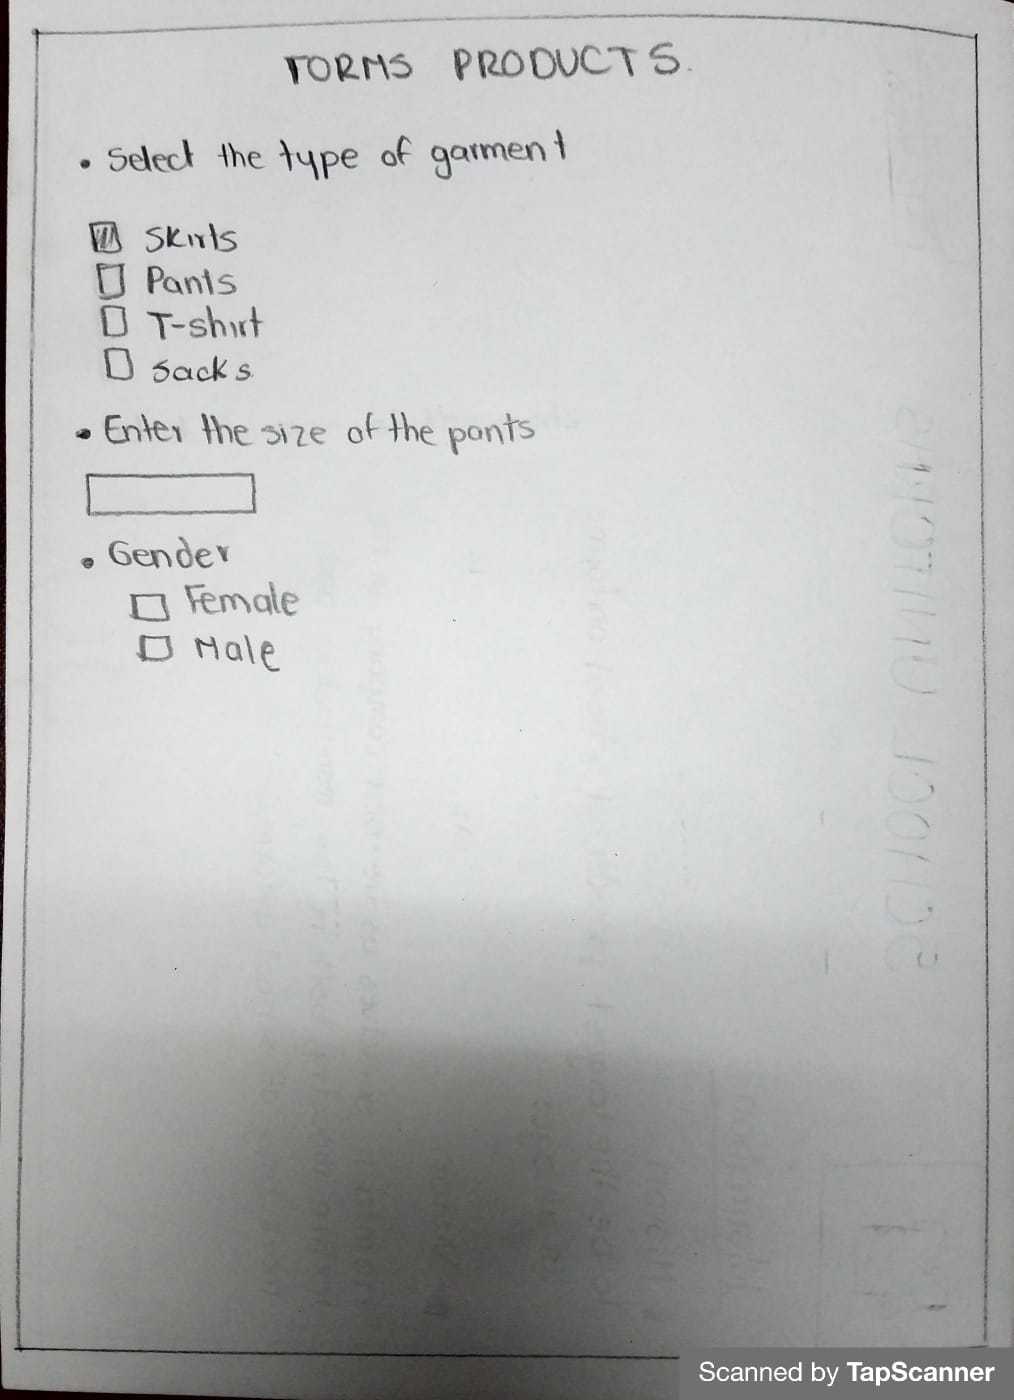 FORMS PRODUCTS.
• Select the type of garment
Skirts
Pants
T-shirt
Sacks
• Enter the size of the pants
• Gender
Female
Male
SCHOOL UNIFORMS
Scanned by TapScanner